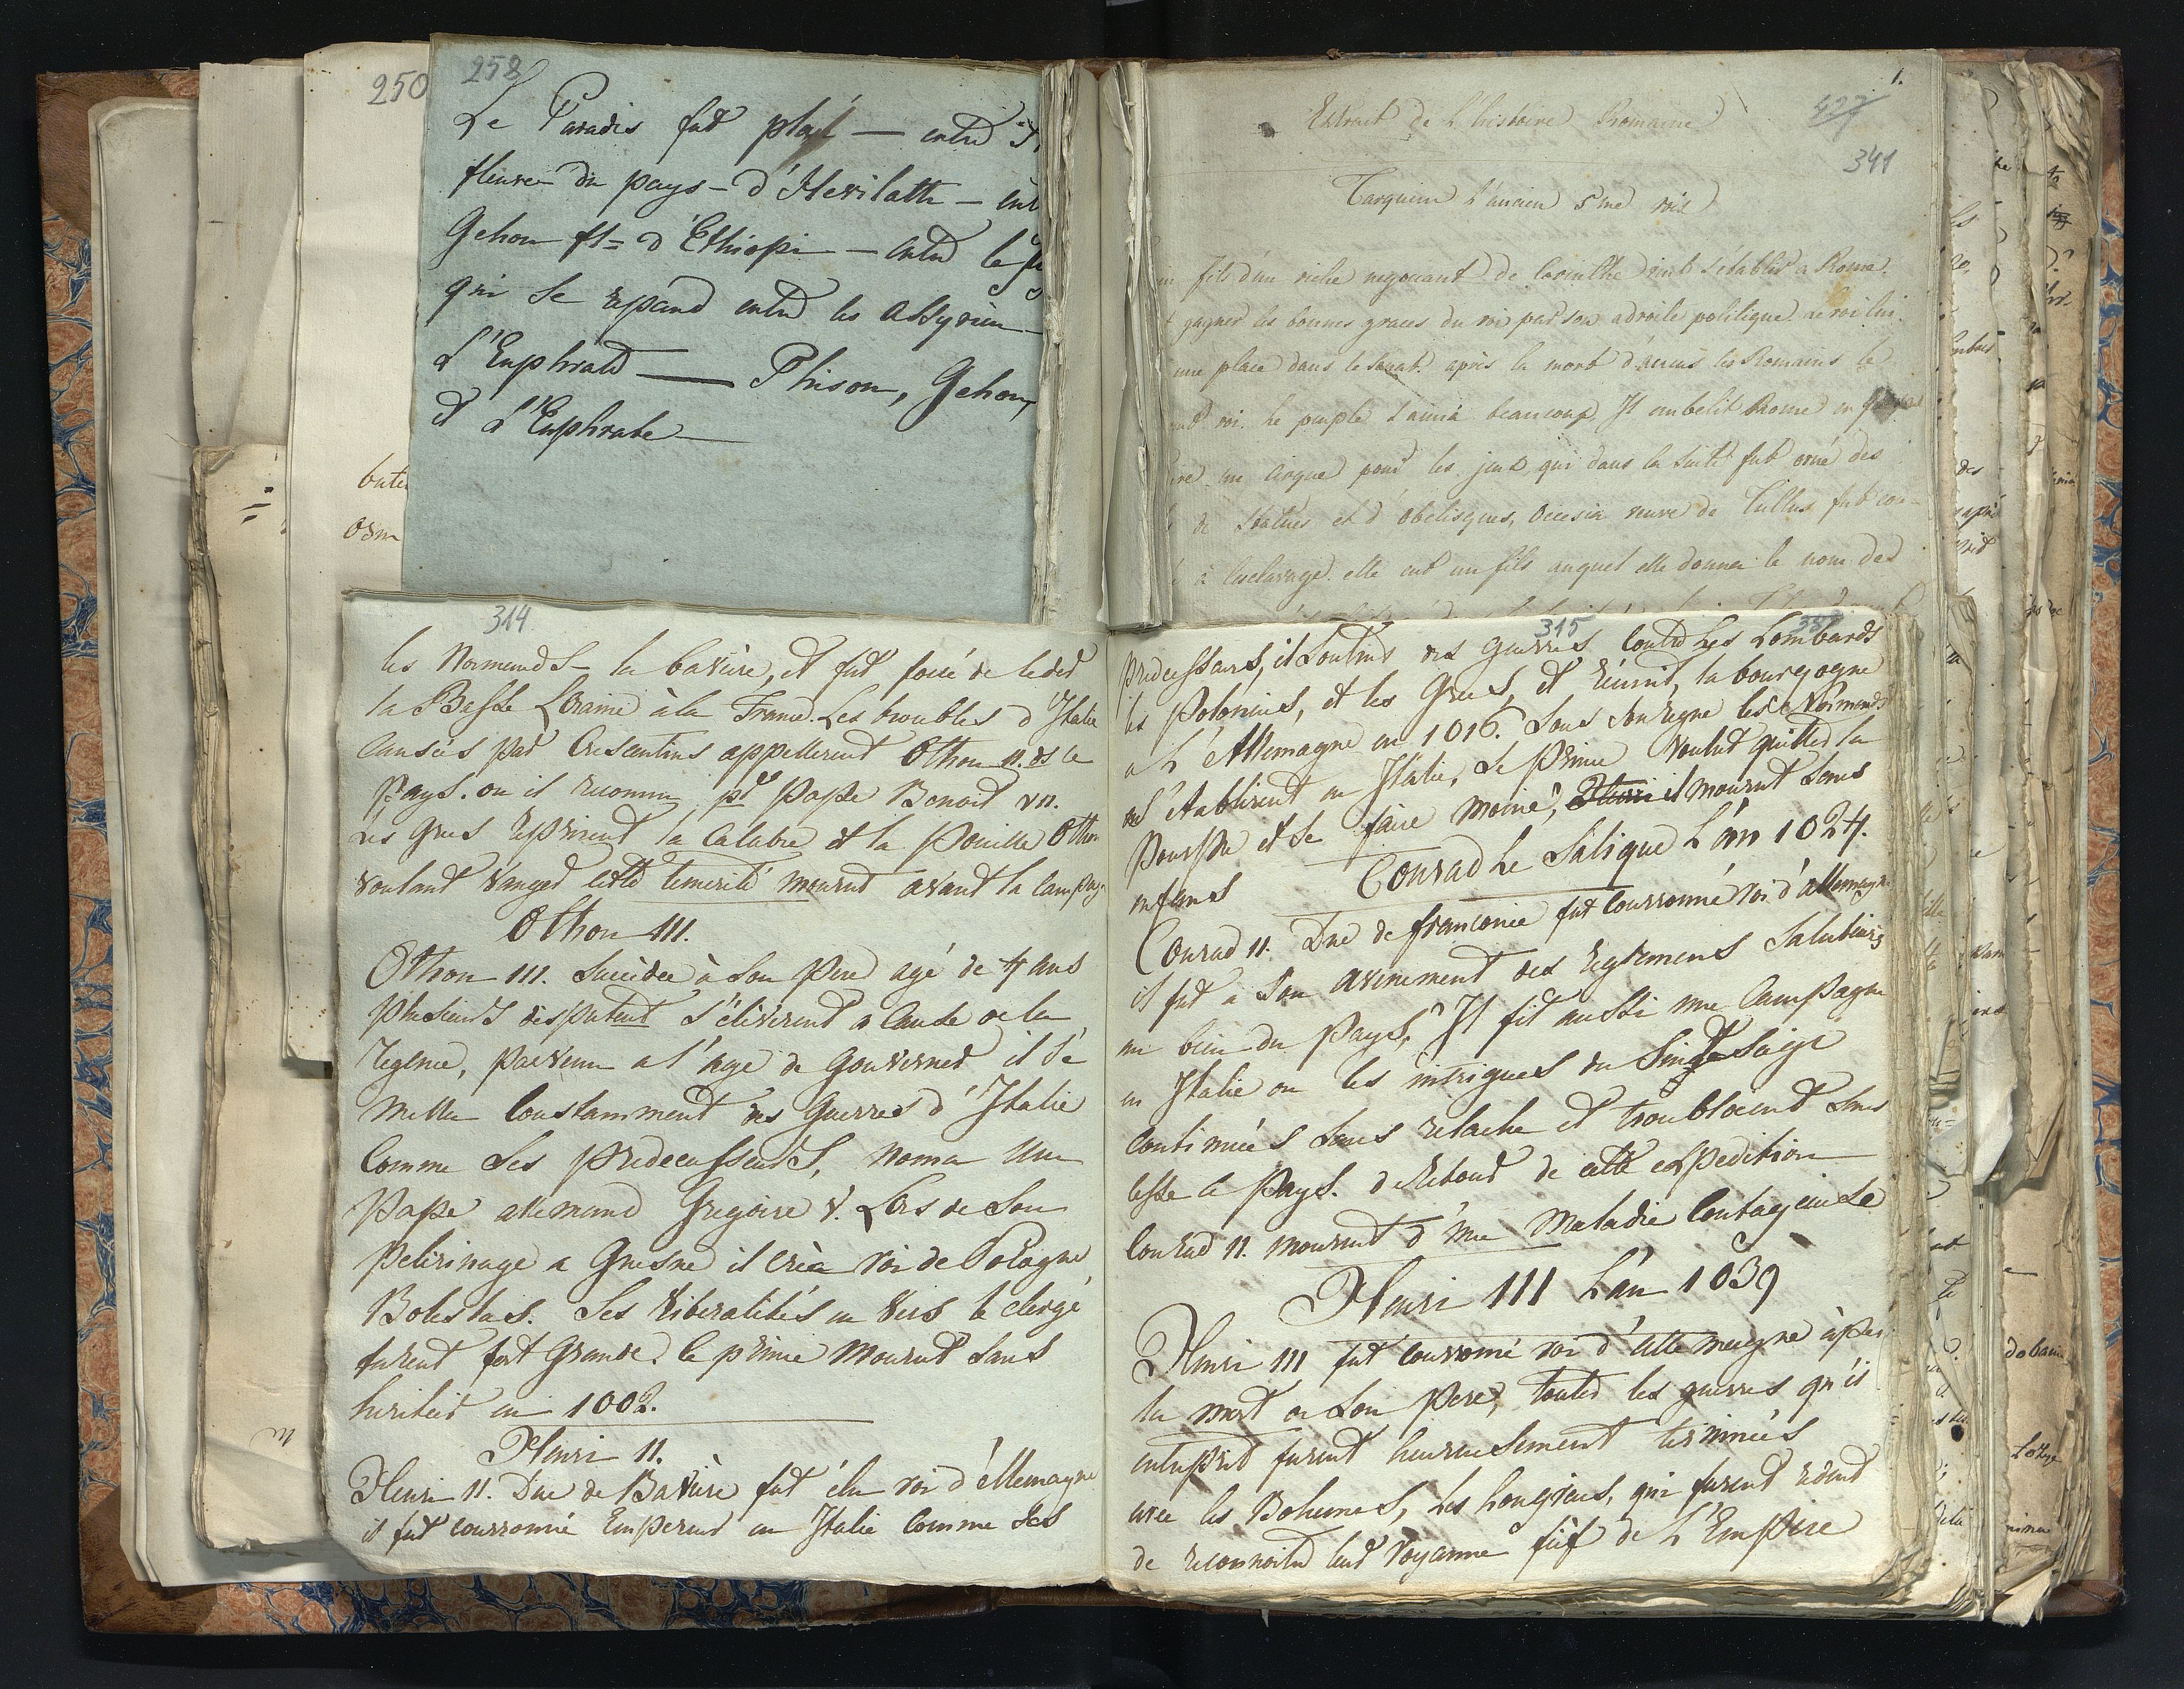 250
258
Le Paradis fut placé — entre
fleuve du pays - d'Hevilath — ent
Gehon fl= d'Ethiopie — entre le
qui se repand entre les Assyrien —
L'Euphrate — Phison, Gehon,
et L'Euphrate —
bute
1.
Extrait de L'histoire Romaine
427
341
Tarquin L'ancien 5me roi
fils d'un riche negociant de Corinthe vint s'établir a Rome.
gagner les bonnes graces du roi par son adroite politique Le roi lui
une place dans le Senat. après la mort d'Ancus les Romains le
roi. Le peuple l'aima beaucoup. Il embelit Rome en
un Cirque pour les jeux, qui dans la suite fut orné des
de Statues et d'obelisques, Ocrisia veuve de Tullus fut con-
à l'esclavage. elle eut un fils auquel elle donna le nom des
314
les Normands - la baviere, et fut forcé de ceder
la Basse Loraine à la France. Les troubles d'Italie
causées par Crescentius appellerent Othon 11. ds ce
Pays. ou il reconnu pr Pape Benoit V11.
Les Grecs reprirent la Calabre et la Pouille Othon
voulant vanger cette temerité mourut avant la Campag
Othon 111.
Othon 111. succéda à son Pere agé de 4 ans
Plusieurs disputent s'éleverent a cause de la
regence, Parvenu a l'age de Gouverner il se
mella Constamment des Guerres d'Italie
Comme Ses Predecesseurs, noma une
Pape allemand Gregoire V. Lors de Son
Pelerinage a Gnesne il créa roi de Pologne
Boleslas. Ses liberalités en vers le clergé
furent fort Grande. Ce prince mourut Sans
heritier en 1002.
Henri 11.
Henri 11. Duc de Baviere fut élu roi d'Allemagne
il fut couronné Empereur en Italie Comme Ses
315
Predecesseurs, il Soutint des Guerres Contre Les Lombards
les Polonius, et les Grecs, et réunit la bourgogne
a L'Allemagne en 1016. Sous son regne les Normands
s'établirent en Italie, Le Prince voulut quitter la
Pourpre et Se faire Moine, il mourut Sans
enfans
Conrad Le Salique L'an 1024.
Conrad 11. Duc de franconie fut Couronné roi d'allemagne
il fit a Son avenement des reglemens Salutaires
au bien du Pays, Il fit aussi une Campagne
en Italie ou les intrigues du Siege
continuées Sans relache et troubloient Sans
cesse le Pays. de retour de cette expedition
Conrad 11. mourut d'une Maladie Contagieuse
Henri 111 L'an 1039
Henri 111 fut couronné roi d'allemagne après
la mort de Son Pere, toutes les guerres qu'il
entreprit furent heureusement terminées
avec les Bohemes, Les hongrois, qui furent
de reconnoitre leur royaume fief de L'Empire